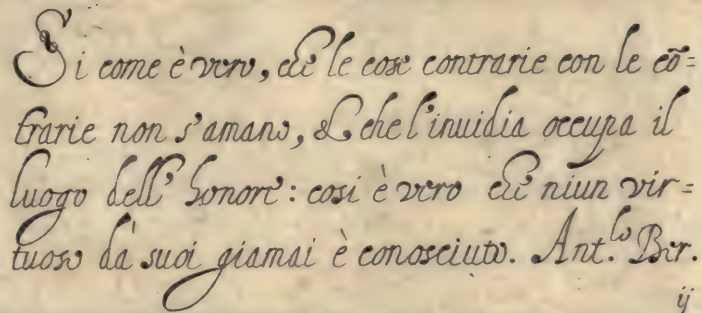 Si come è vero, che le cose contrarie con le cõ=
trarie non s'amano, & che l'inuidia occupa il
luogo dell' honore: così è vero che niun vir=
tuoso dà suoi giamai è conosciuto. Ant.lo Ber.
ij